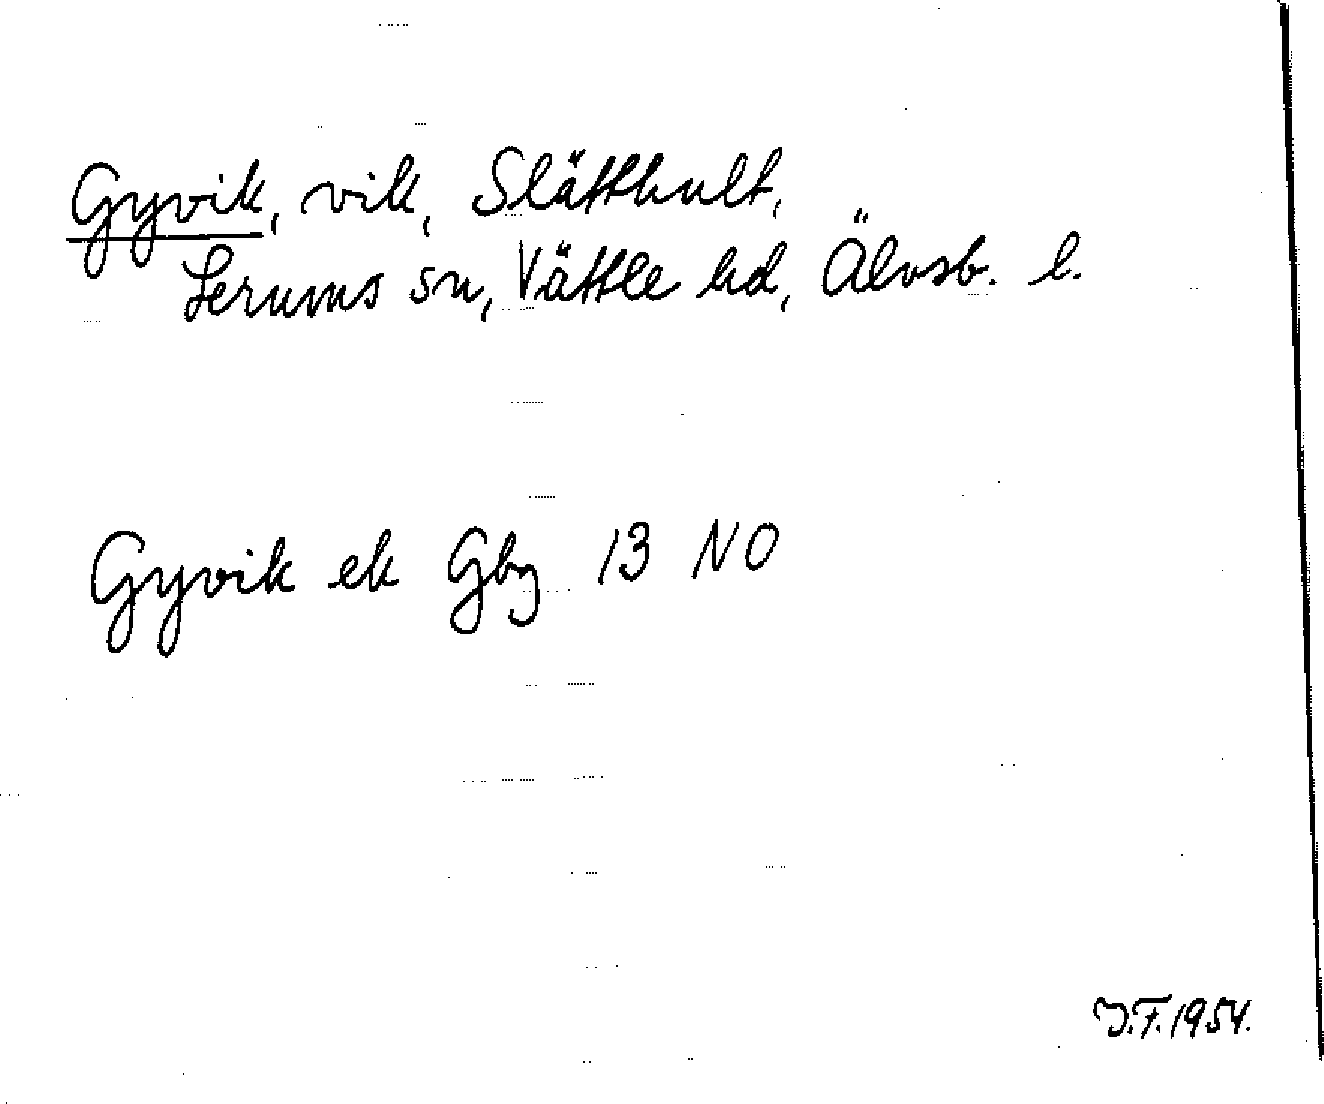 Gyvik, vik, Slätthult,
Lerums sn, Vättle hd, Älvsb. l.
Gyvik ek Gbg 13 NO
D.F. 1954.